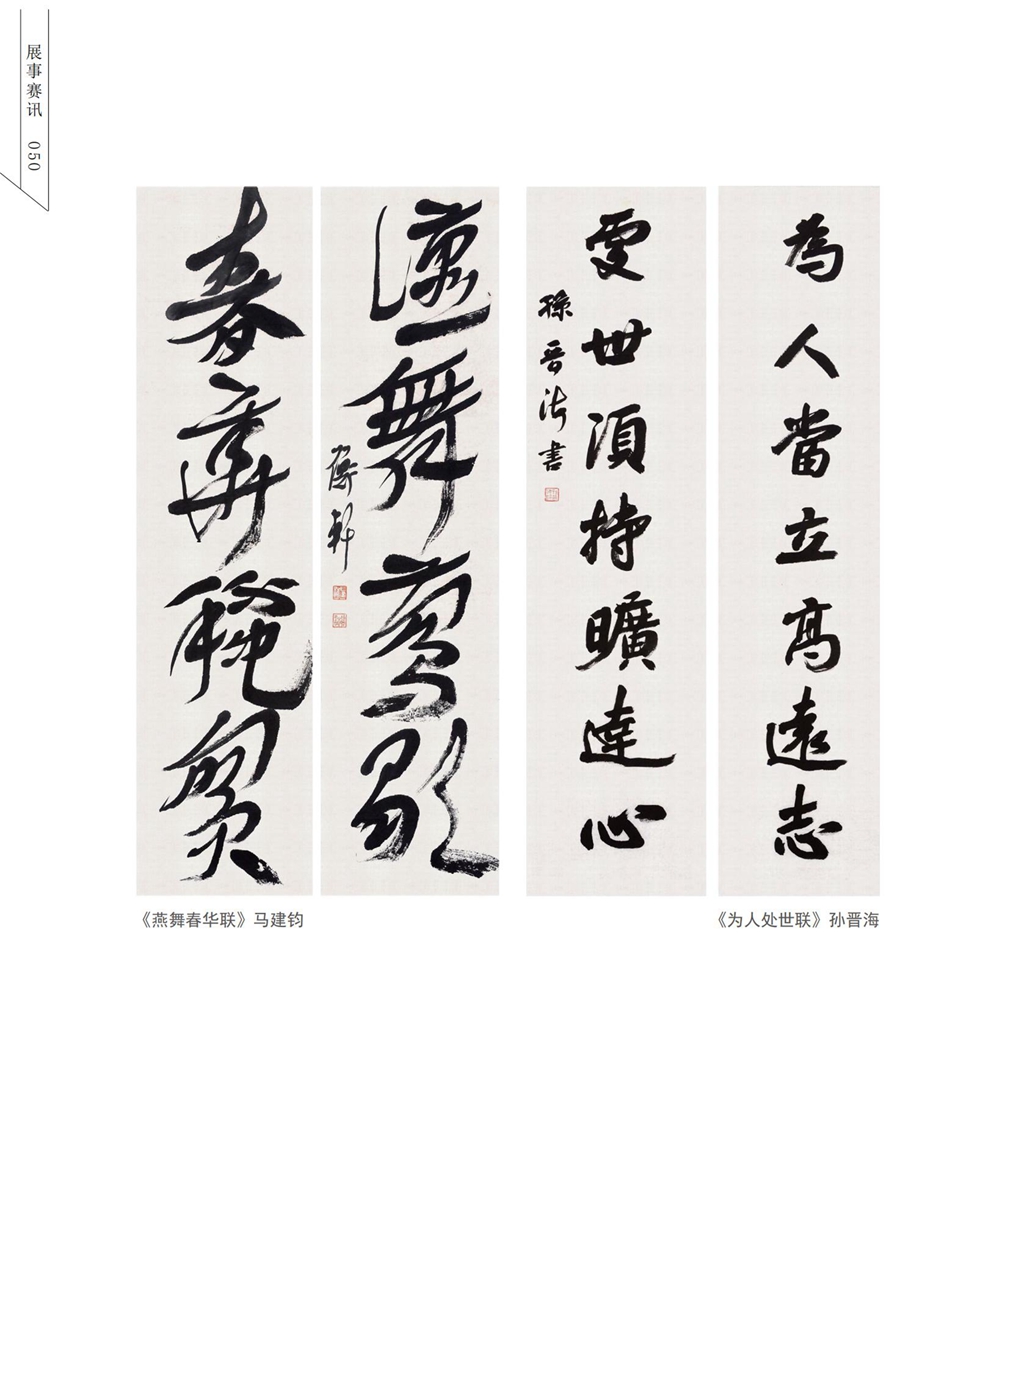 展事赛讯 050
為人當立高遠志
處世須持曠達心
孫晉海書
燕舞鶯歌
春華穐實
《燕舞春华联》马建钧
《为人处世联》孙晋海